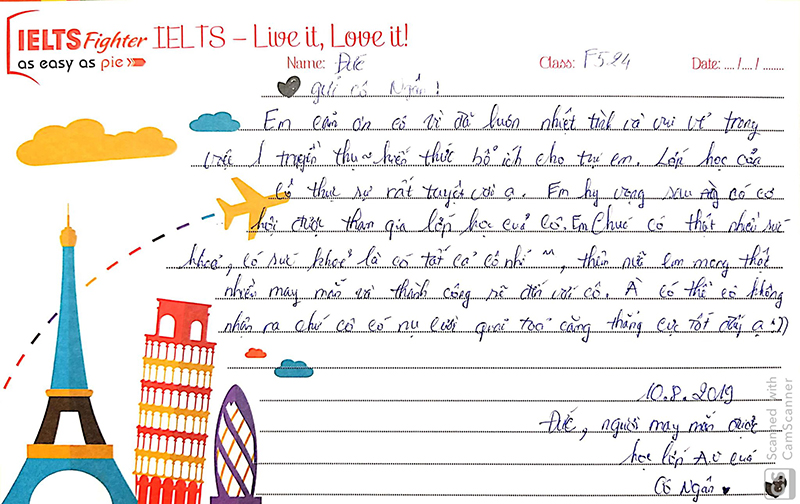 IELTS Fighter IELTS – Live it, Love it!
as easy as pie
Name: Đức Class: F5.24 Date: ..../..../........
gửi cô Ngân!
Em cảm ơn cô vì đã luôn nhiệt tình và vui vẻ trong
việc truyền thụ kiến thức bổ ích cho tụi em. Lớp học của
cô thực sự rất tuyệt vời ạ. Em hy vọng sau này có cơ
hội được tham gia lớp học của cô. Em chúc cô thật nhiều sức
khoẻ, có sức khoẻ là có tất cả cô nhỉ ^^, thêm nữa em mong thật
nhiều may mắn và thành công sẽ đến với cô. À có thể cô không
nhận ra chứ cô có nụ cười giải toả căng thẳng cực tốt đấy ạ :))
10.8.2019
Đức, người may mắn được
học lớp A.V của
Cô Ngân
Scanned with
CamScanner
CS